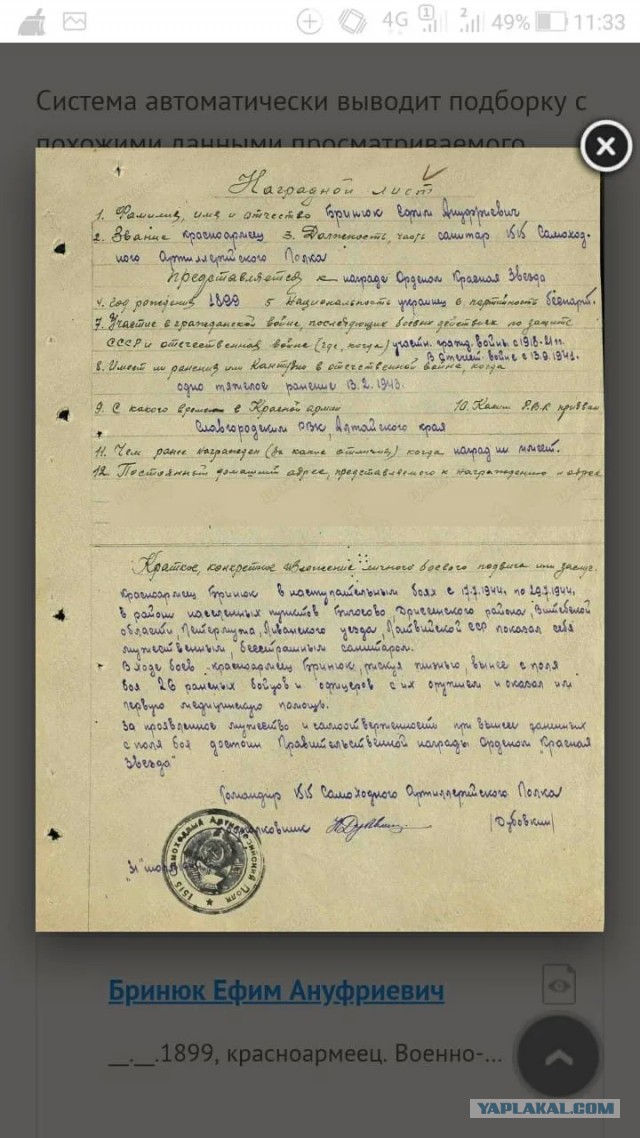 4G 1 2 49% 11:33
Система автоматически выводит подборку с
похожими данными просматриваемого
Наградной лист
1. Фамилия, имя и отчество Бринюк Ефим Ануфриевич
2. Звание красноармеец 3. Должность, часть санитар 1515 Самоход-
ного Артиллерийского Полка
Представляется к награде Орденом Красная Звезда
4. Год рождения 1899 5 Национальность украинец 6. партийность беспарт.
7. Участие в гражданской войне, последующих боевых действиях по защите
СССР и отечественной войне (где, когда) участн. гражд. войны с 1918-21 гг.
В Отечеств. войне с 13.9.1941.
8. Имеет ли ранения или контузию в отечественной войне, когда
одно тяжелое ранение 13.2.1943.
9. С какого времени в Красной армии 10. Каким РВК призван
Славгородским РВК, Алтайского края
11. Чем ранее награжден (за какие отличия) когда наград не имеет.
12. Постоянный домашний адрес, представляемого к награждению и адрес
Краткое, конкретное изложение личного боевого подвига или заслуг.
Красноармеец Бринюк в наступательных боях с 17.7.1944 по 29.7.1944.
в районе населенных пунктов Дриссенского района, Витебской
области, Ливанского уезда, Латвийской ССР показал себя
мужественным, бесстрашным санитаром.
В ходе боев красноармеец Бринюк, рискуя жизнью, вынес с поля
боя 26 раненых бойцов и офицеров с их оружием и оказал им
первую медицинскую помощь.
За проявленное мужество и самоотверженность при выносе раненных
с поля боя достоин Правительственной награды Орденом "Красная
Звезда"
Командир 1515 Самоходного Артиллерийского Полка
Подполковник (Дубовкин)
"31" июля
1515 Самоходный Артиллерийский Полк
Бринюк Ефим Ануфриевич
__.__.1899, красноармеец. Военно-...
YAPLAKAL.COM